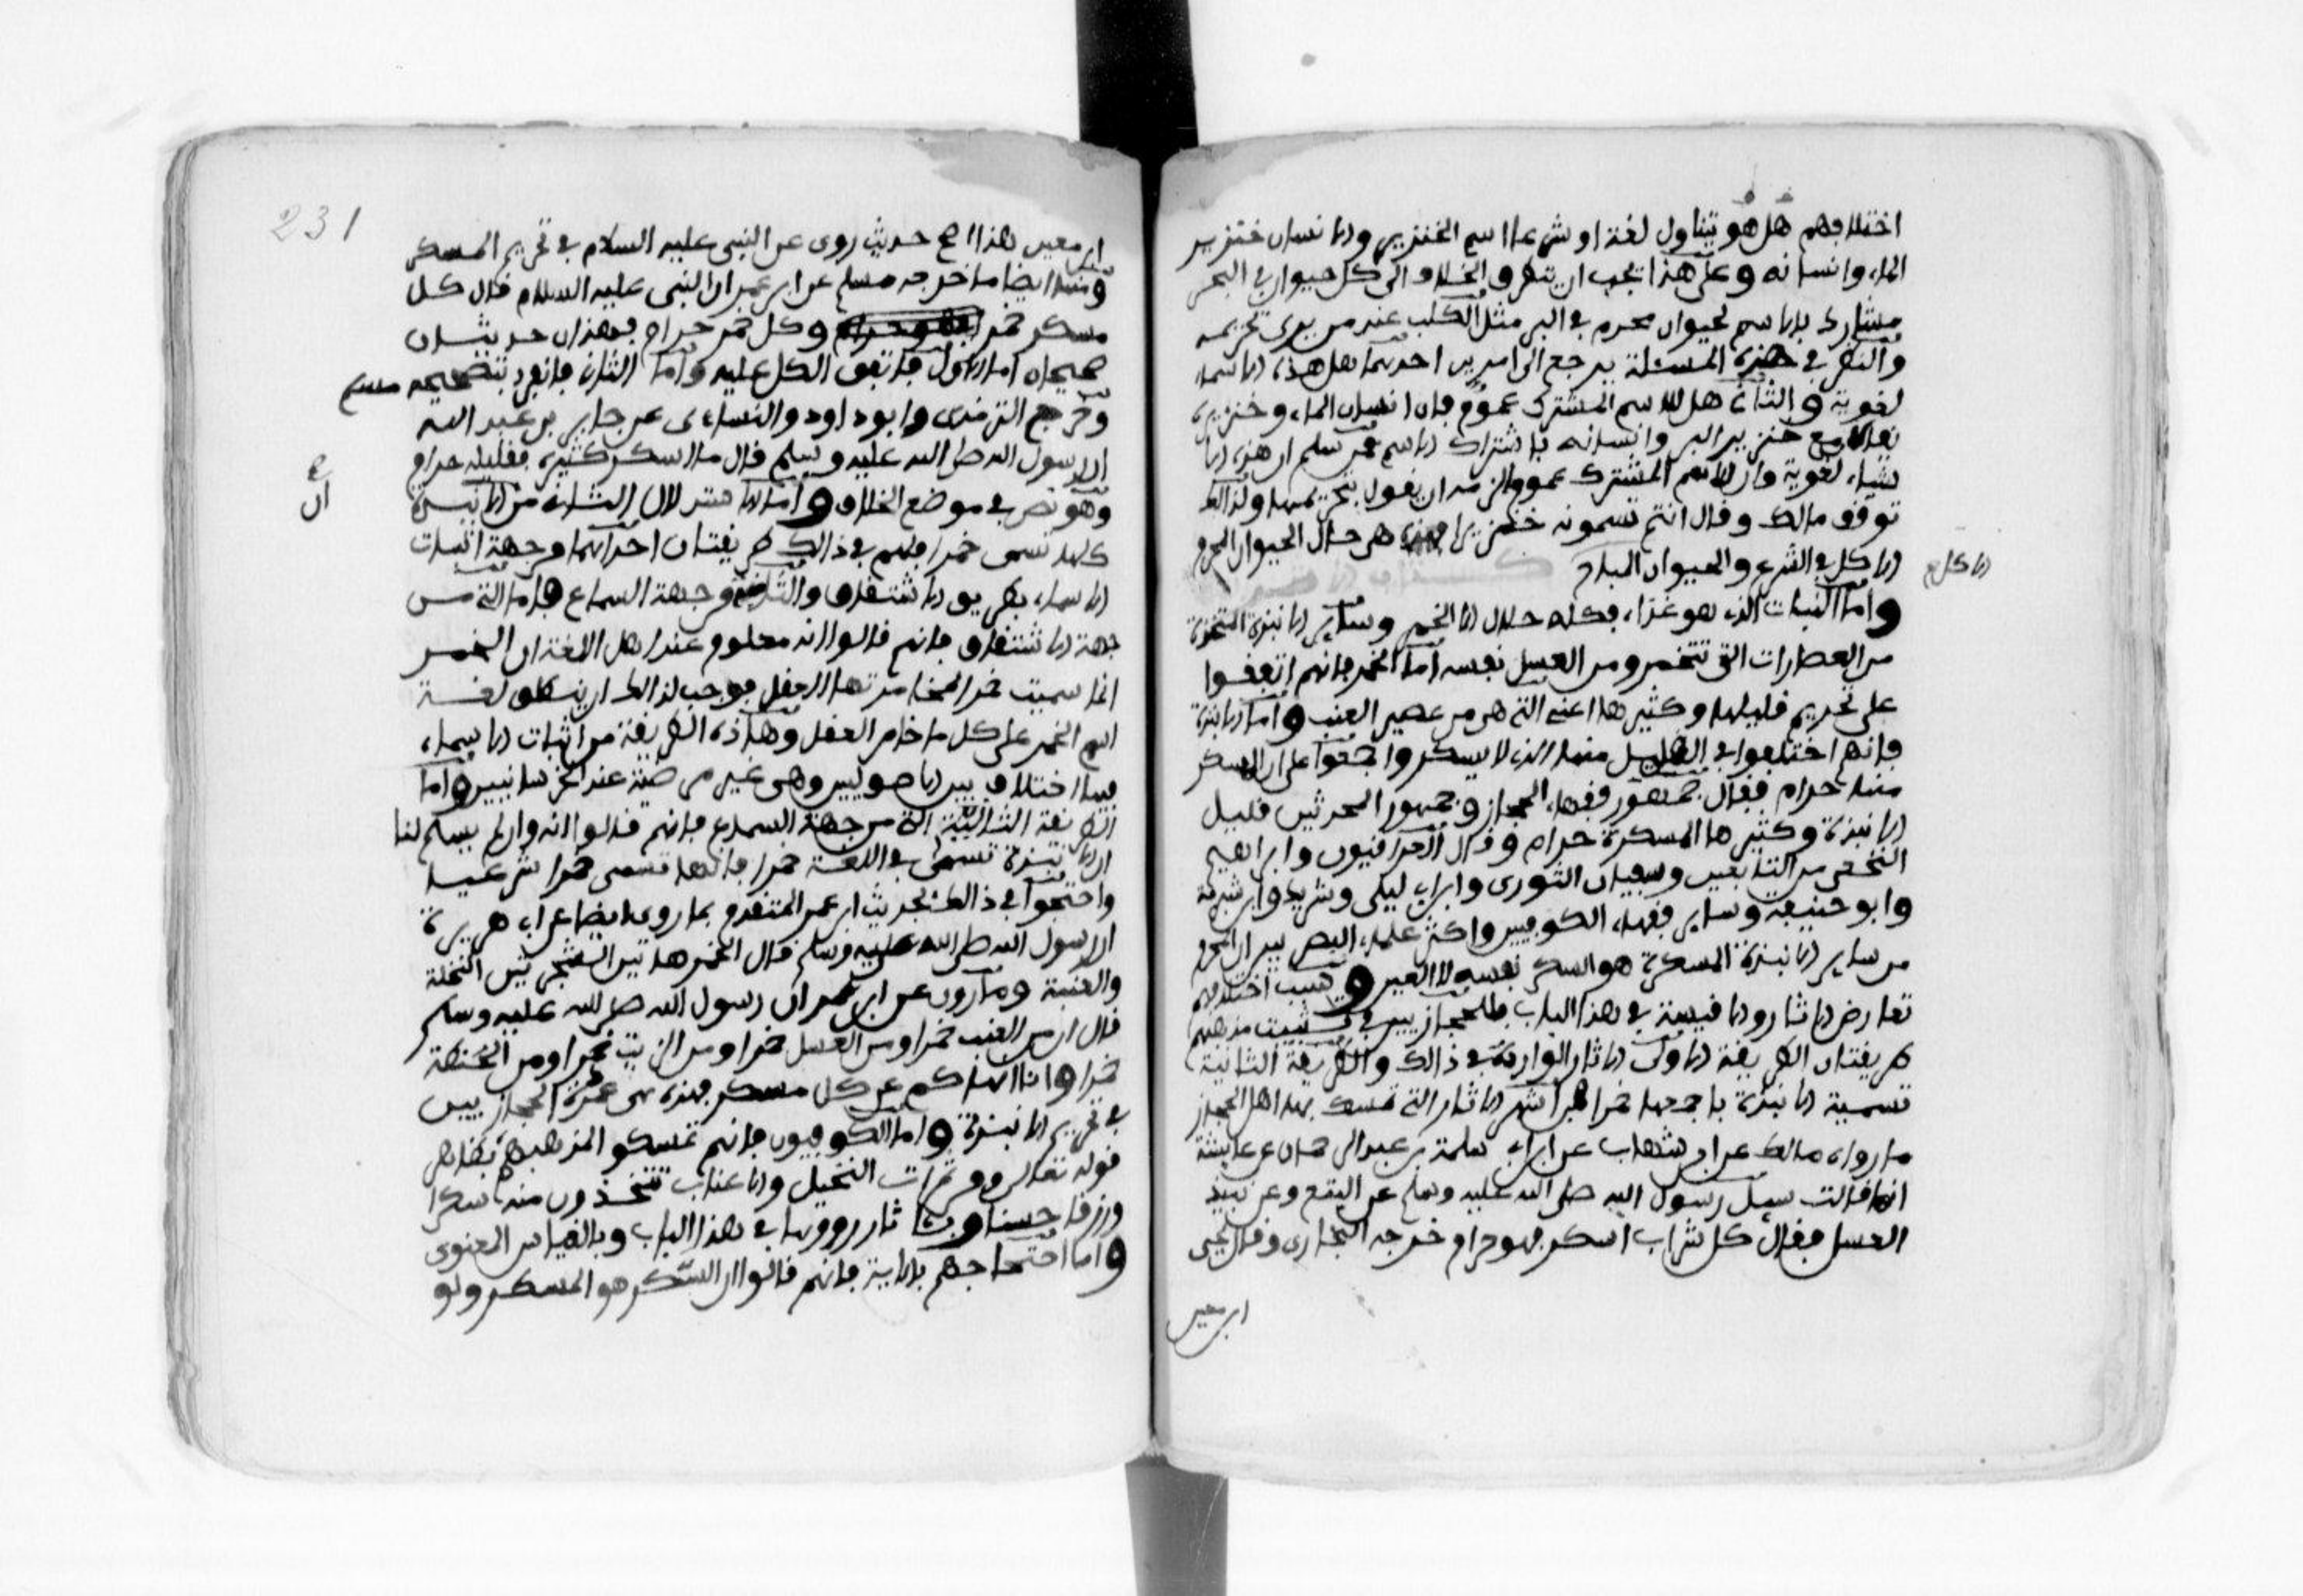 اختلافهم هل هو يتناول لغة او شرعا اسم الخنزير والانسان خنزير
الماء وانسانه وعلى هذا يجب ان يتطرق الخلاف الى كل حيوان في البحر
مشارك بالاسم لحيوان محرم في البر مثل الكلب عند من يرى تحريمه
والنظر في هذه المسئلة يرجع الى امرين احدهما هل هذه الاسماء
لغوية والثاني هل للاسم المشترك عموم فان انسان الماء وخنزيره
يقالان مع خنزير البر وانسانه باشتراك الاسم فمن سلم ان هذه الا
شياء لغوية وان للاسم المشترك عموما لزمه ان يقول بتحريمها ولذالك
توقف مالك وقال انتم تسمونه خنزيرا فهذه هي حال الحيوان المحرم
الاكل في الشرع والحيوان المباح
الاكل
واما النبات الذي هو غذاء فكله حلال الا الخمر وساير الانبذة المتخذة
من العصارات التي تتخمر ومن العسل نفسه اما الخمر فانهم اتفقوا
على تحريم قليلها وكثيرها اعني التي هي من عصير العنب واما الانبذة
فانهم اختلفوا في القليل منها الذي لا يسكر واجمعوا على ان المسكر
منها حرام فقال جمهور فقهاء الحجاز وجمهور المحدثين قليل
الانبذة وكثيرها المسكرة حرام وقال العراقيون وابراهيم
النخعي من التابعين وسفيان الثوري وابن ابي ليلى وشريك وابن شبرمة
وابو حنيفة وساير فقهاء الكوفيين واكثر علماء البصريين ان المحرم
من ساير الانبذة المسكرة هو السكر نفسه لا العين وسبب اختلافهم
تعارض الاثار والاقيسة في هذا الباب فللحجازيين في تثبيت مذهبهم
طريقتان الطريقة الاولى الاثار الواردة في ذالك والطريقة الثانية
تسمية الانبذة باجمعها خمرا فمن اشهر الاثار التي تمسك بها اهل الحجاز
ما رواه مالك عن ابن شهاب عن ابي سلمة بن عبد الرحمان عن عايشة
انها قالت سيل رسول الله صلى الله عليه وسلم عن البتع وعن نبيذ
العسل فقال كل شراب اسكر فهو حرام خرجه البخاري وقال يحيى
ابن معين
231
ابن معين هذا اصح حديث روي عن النبي عليه السلام في تحريم المسكر
ومنها ايضا ما خرجه مسلم عن ابن عمر ان النبي عليه السلام قال كل
مسكر خمر وكل خمر حرام فهذان حديثان
صحيحان اما الاول فاتفق الكل عليه واما الثاني فانفرد بتصحيحه مسلم
وخرج الترمذي وابو داود والنساءي عن جابر بن عبد الله
ان رسول الله صلى الله عليه وسلم قال ما اسكر كثيره فقليله حرام
وهو نص في موضع الخلاف واما الاستدلال الثاني من ان الانبذة
ان
كلها تسمى خمرا فلهم في ذالك طريقتان احداهما من جهة اثبات
الاسماء بطريق الاشتقاق والثاني من جهة السماع فاما التي من
جهة الاشتقاق فانهم قالوا انه معلوم عند اهل اللغة ان الخمر
انما سميت خمرا لمخامرتها العقل فوجب لذالك ان ينطلق لغة
اسم الخمر على كل ما خامر العقل وهاذه الطريقة من اثبات الاسماء
فيها اختلاف بين الاصوليين وهي غير مرضية عند الخرسانيين واما
الطريقة الثانية التي من جهة السماع فانهم قالوا انه وان لم يسلم لنا
ان الانبذة تسمى في اللغة خمرا فانها تسمى خمرا شرعيا
واحتجوا في ذالك بحديث ابن عمر المتقدم بما روي ايضا عن ابي هريرة
ان رسول الله صلى الله عليه وسلم قال الخمر من هاتين الشجرتين النخلة
والعنبة وما روي عن ابن عمر ان رسول الله صلى الله عليه وسلم
قال ان من العنب خمرا ومن العسل خمرا ومن الزبيب خمرا ومن الحنطة
خمرا وانا انهاكم عن كل مسكر فهذه هي عمدة الحجازيين
في تحريم الانبذة واما الكوفيون فانهم تمسكوا لمذهبهم بظاهر
قوله تعالى ومن ثمرات النخيل والاعناب تتخذون منه سكرا
ورزقا حسنا وباثار رووها في هذا الباب وبالقياس المعنوي
واما احتجاجهم بالاية فانهم قالوا ان السكر هو المسكر ولو